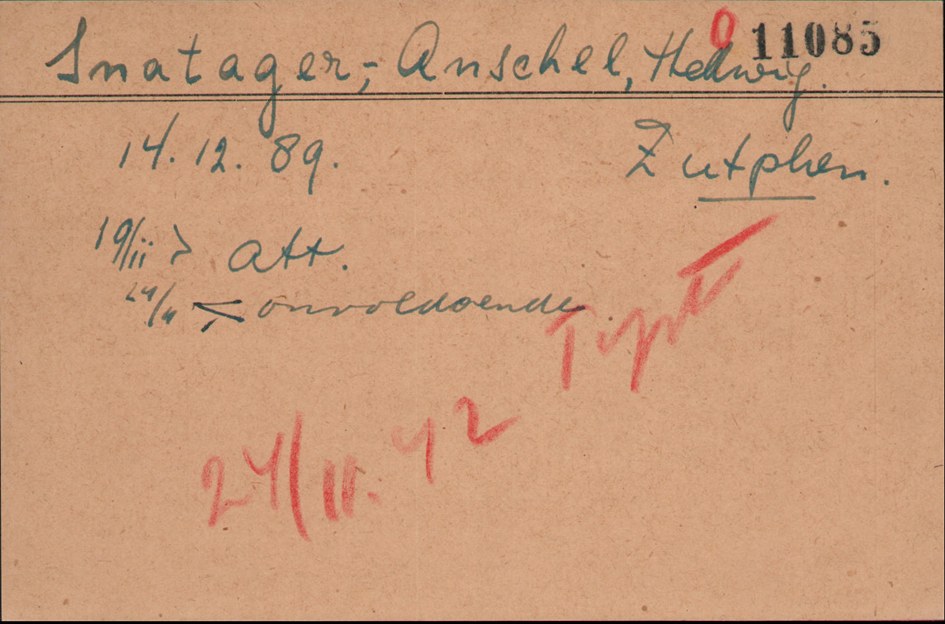 0 11085
Snatager,- Anschel, Hedwig.
14. 12. 89. Zutphen.
19/ii > Att.
24/11 < onvoldoende
Typ
24/11. 42